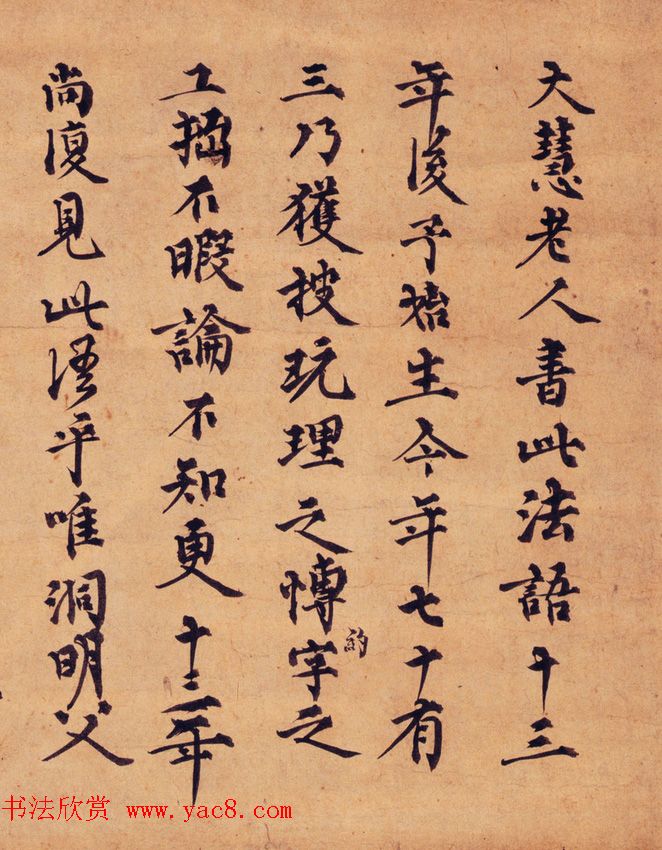 大慧老人書此法語十三
年後予始生今年七十有
三乃獲披玩理之愽字之
約
工拙不暇論不知更十三年
尚復見此乎唯洞明父
书法欣赏 www.yac8.com